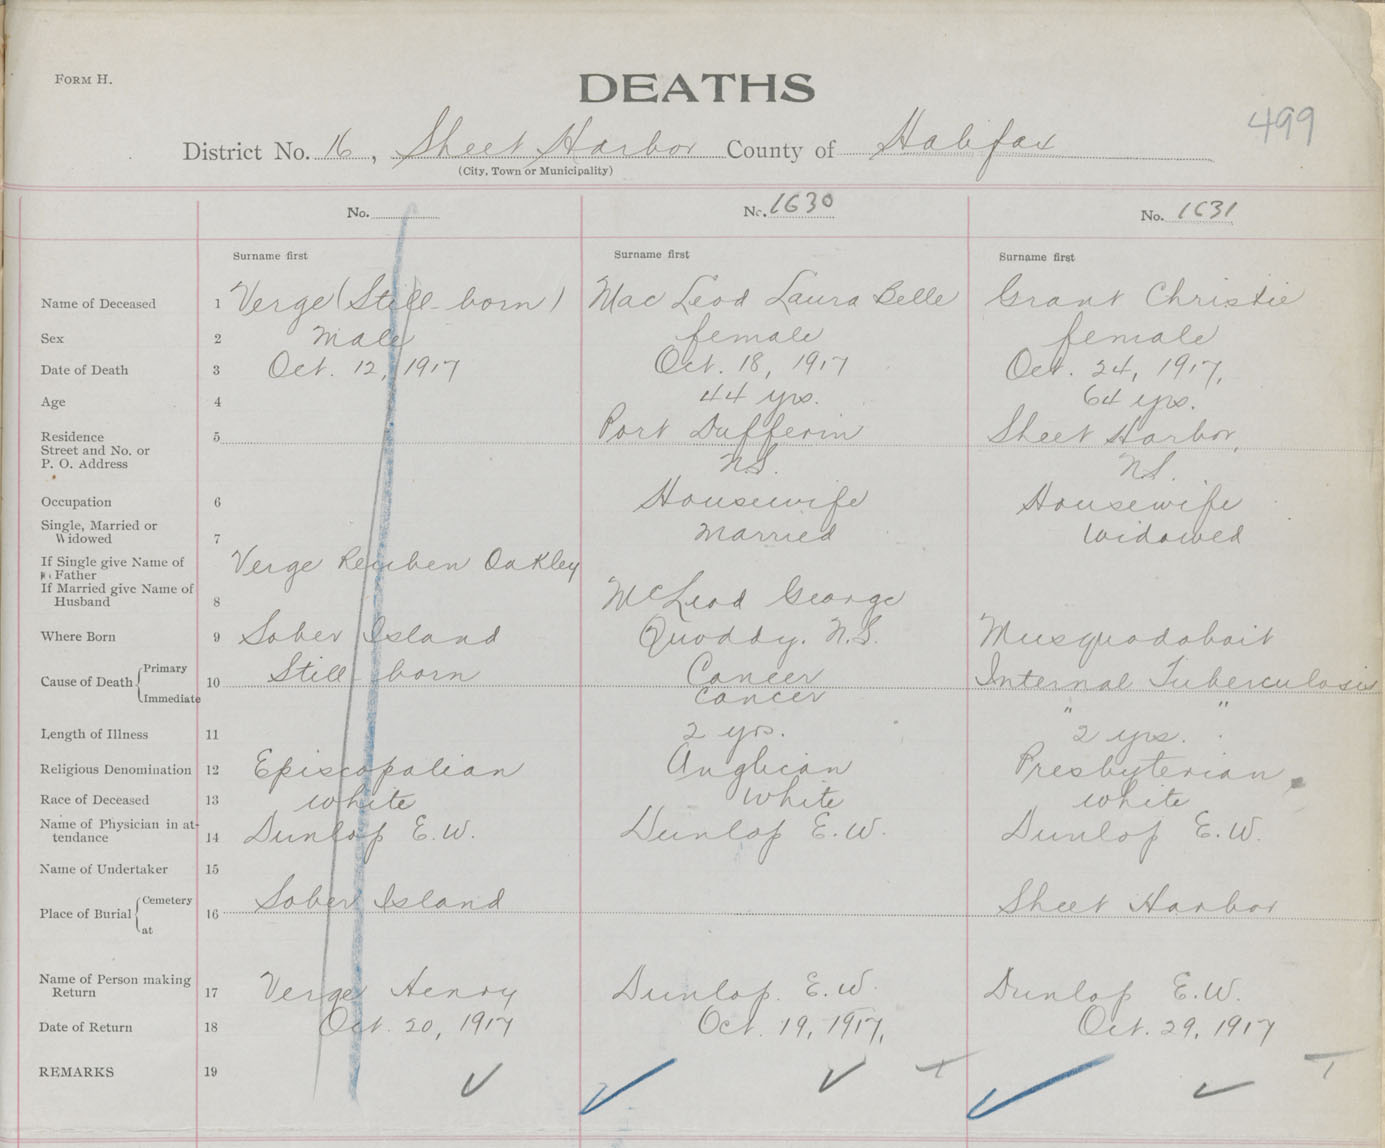 FORM H.
DEATHS
499
District No. 16, Sheet Harbor County of Halifax
(City, Town or Municipality)
No. No. 1630 No. 1631
Surname first Surname first Surname first
Name of Deceased 1 Verge (Still-born) Mac Leod Laura Belle Grant Christie
Sex 2 Male female female
Date of Death 3 Oct. 12, 1917 Oct. 18, 1917 Oct. 24, 1917,
Age 4 44 yrs. 64 yrs.
Residence 5 Port Dufferin Sheet Harbor,
Street and No. or
P. O. Address N.S. N.S.
Occupation 6 Housewife Housewife
Single, Married or
Widowed 7 Married Widowed
If Single give Name of
Father Verge Reuben Oakley
If Married give Name of
Husband 8 McLeod George
Where Born 9 Sober Island Quoddy. N.S. Musquodoboit
Cause of Death Primary 10 Still born Cancer Internal Tuberculosis
Immediate Cancer " "
Length of Illness 11 2 yrs. 2 yrs.
Religious Denomination 12 Episcopalian Anglican Presbyterian
Race of Deceased 13 white white white
Name of Physician in at-
tendance 14 Dunlop E.W. Dunlop E.W. Dunlop E.W.
Name of Undertaker 15
Place of Burial Cemetery 16 Sober Island Sheet Harbor
at
Name of Person making
Return 17 Verge Henry Dunlop. E.W. Dunlop E.W.
Date of Return 18 Oct. 20, 1917 Oct. 19, 1917, Oct. 29, 1917
REMARKS 19